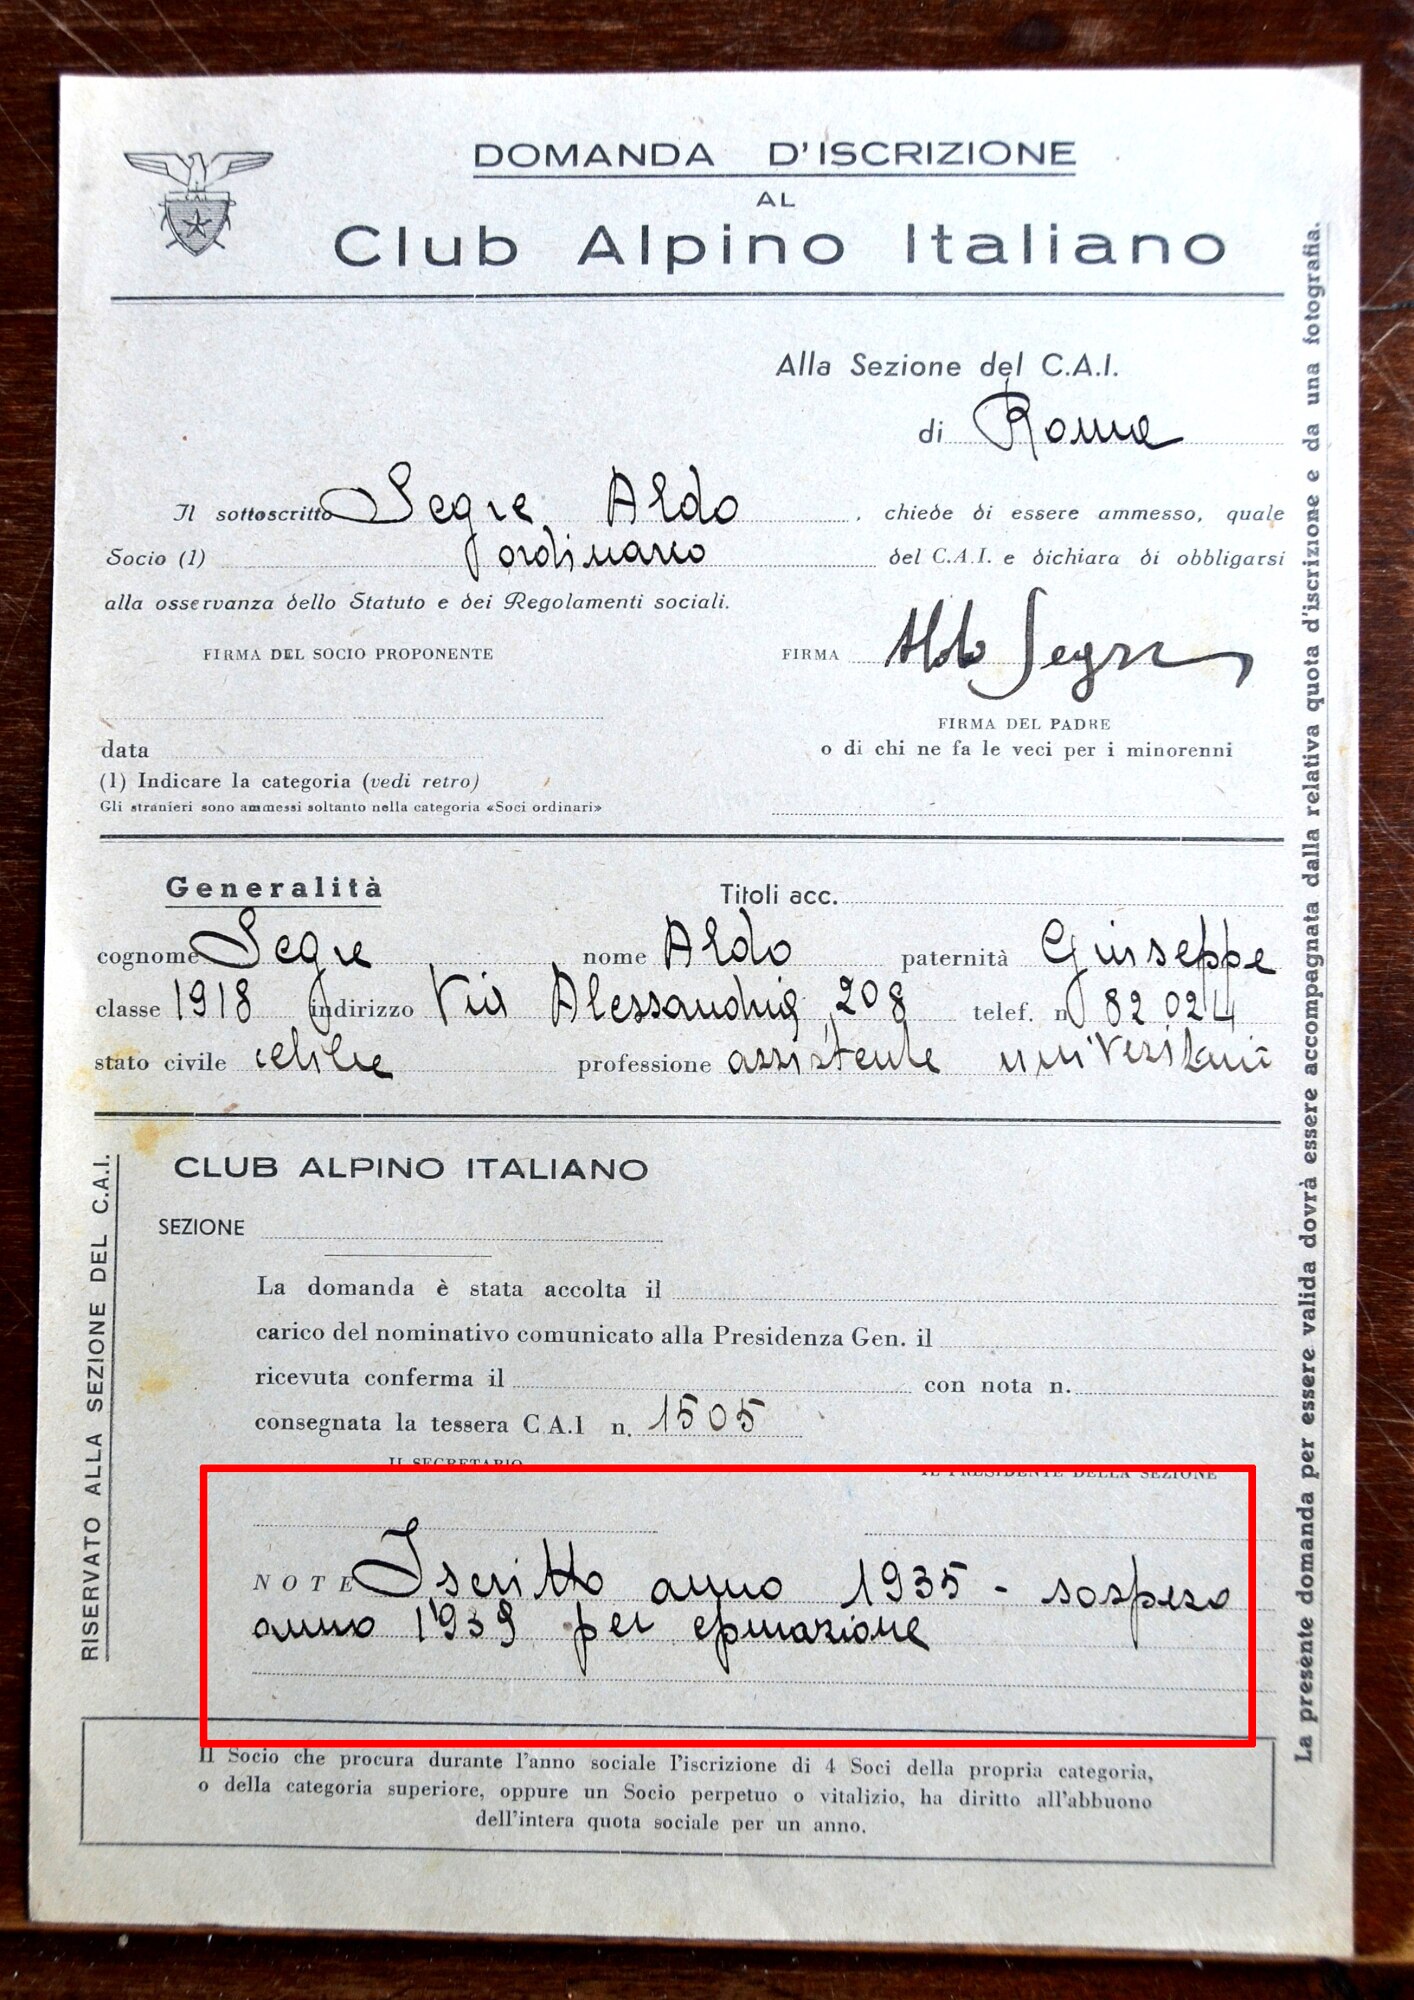 DOMANDA D'ISCRIZIONE
AL
Club Alpino Italiano
Alla Sezione del C.A.I.
di Roma
Il sottoscritto Segre Aldo, chiede di essere ammesso, quale
Socio (1) ordinario del C.A.I. e dichiara di obbligarsi
alla osservanza dello Statuto e dei Regolamenti sociali.
FIRMA DEL SOCIO PROPONENTE
FIRMA Aldo Segre
FIRMA DEL PADRE
o di chi ne fa le veci per i minorenni
data
(1) Indicare la categoria (vedi retro)
Gli stranieri sono ammessi soltanto nella categoria «Soci ordinari»
Generalità Titoli acc.
cognome Segre nome Aldo paternità Giuseppe
classe 1918 indirizzo Via Alessandria, 208 telef. n 82 024
stato civile celibe professione assistente
RISERVATO ALLA SEZIONE DEL C.A.I.
CLUB ALPINO ITALIANO
SEZIONE
La domanda è stata accolta il
carico del nominativo comunicato alla Presidenza Gen. il
ricevuta conferma il con nota n.
consegnata la tessera C.A.I n. 1505
IL SEGRETARIO
IL PRESIDENTE DELLA SEZIONE
NOTE Iscritto anno 1935 - sospeso
anno 1939 per
Il Socio che procura durante l'anno sociale l'iscrizione di 4 Soci della propria categoria,
o della categoria superiore, oppure un Socio perpetuo o vitalizio, ha diritto all'abbuono
dell'intera quota sociale per un anno.
La presente domanda per essere valida dovrà essere accompagnata dalla relativa quota d'iscrizione e da una fotografia.